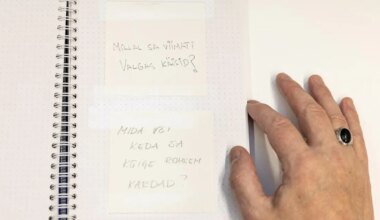 MILLAL SA VIIMATI
VALGAS KÄISID?
MIDA VÕI
KEDA SA
KÕIGE ROHKEM
KARDAD?